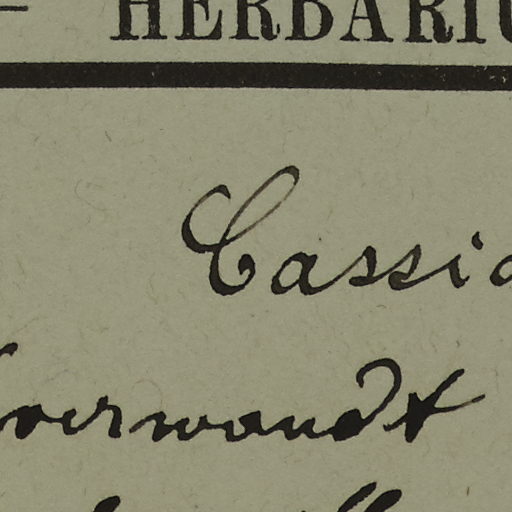 — HERBARIU
Cassia
verwandt